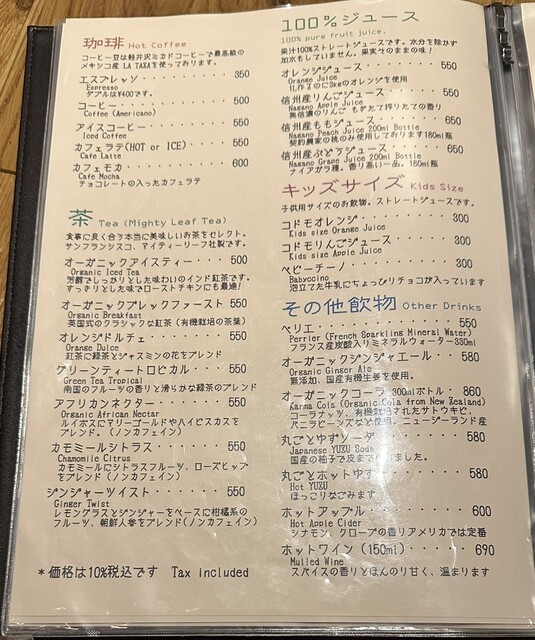 珈琲 Hot Coffee
コーヒー豆は軽井沢ミカドコーヒーで最高級の
メキシコ産 LA TAXAを使っております。
エスプレッソ・・・・・・・・ 350
Espresso
ダブルは¥400です。
コーヒー・・・・・・・・・・ 500
Coffee (Americano)
アイスコーヒー・・・・・・・ 550
Iced Coffee
カフェラテ(HOT or ICE)・・・ 550
Cafe Latte
カフェモカ・・・・・・・・・ 600
Cafe Mocha
チョコレートの入ったカフェラテ
茶 Tea (Mighty Leaf Tea)
食事に良く合う本当に美味しいお茶をセレクト。
サンフランシスコ、マイティーリーフ社製です。
オーガニックアイスティー・・・ 500
Organic Iced Tea
芳醇でしっかりとした味わいのインド紅茶です。
すっきりとした味でローストチキンにも最適!
オーガニックブレックファースト 550
Organic Breakfast
英国式のクラシックな紅茶 (有機栽培の茶葉)
オレンジドルチェ・・・・・・・ 550
Orange Dulce
紅茶に緑茶とジャスミンの花をブレンド
グリーンティートロピカル・・・ 550
Green Tea Tropical
南国のフルーツの香りと滑らかな緑茶のブレンド
アフリカンネクター・・・・・・ 550
Organic African Nectar
ルイボスにマリーゴールドやハイビスカスを
ブレンド。(ノンカフェイン)
カモミールシトラス・・・・・・ 550
Chamomile Citrus
カモミールにシトラスフルーツ、ローズヒップ
をブレンド (ノンカフェイン)
ジンジャーツイスト・・・・・・ 550
Ginger Twist
レモングラスとジンジャーをベースに柑橘系の
フルーツ、朝鮮人参をブレンド(ノンカフェイン)
*価格は10%税込です Tax included
100%ジュース
100% pure fruit juice.
果汁100%ストレートジュースです。水分を除かず
加水もしていません。果実そのままの味!
オレンジジュース・・・・・・・ 550
Orange Juice
1L作るのに3kgのオレンジを使用
信州産りんごジュース・・・・・ 550
Nagano Apple Juice
無信濃のりんご もぎたて搾りたての香り
信州産ももジュース・・・・・・ 650
Nagano Peach Juice 200ml Bottle
契約農家の桃のみ使用しております180ml瓶
信州産ぶどうジュース・・・・・ 650
Nagano Grape Juice 200ml Bottle
ナイアガラ種。香り高い一品。180ml瓶
キッズサイズ Kids Size
子供用サイズのお飲物。ストレートジュースです。
コドモオレンジ・・・・・・・・ 300
Kids size Orange Juice
コドモりんごジュース・・・・・ 300
Kids size Apple Juice
ベビーチーノ・・・・・・・・・ 300
Babyccino
泡立てた牛乳にちょっぴりチョコが入っています
その他飲物 Other Drinks
ペリエ・・・・・・・・・・・・ 550
Perrier (French Sparkling Mineral Water)
フランス産炭酸入りミネラルウォーター330ml
オーガニックジンジャエール・・ 580
Organic Ginger Ale
無添加、国産有機生姜を使用。
オーガニックコーラ 300mlボトル・ 860
Karma Cola (Organic Cola from New Zealand)
コーラナッツ、有機栽培されたサトウキビ、
バニラビーンズなど使用。ニュージーランド産
丸ごとゆずソーダ・・・・・・・ 580
Japanese YUZU Soda
国産の柚子で皮まで しました。
丸ごとホットゆず・・・・・・・ 580
Hot YUZU
ほっこりなごみます
ホットアップル・・・・・・・・ 600
Hot Apple Cider
シナモン、クローブの香りアメリカでは定番
ホットワイン (150ml)・・・・・ 690
Mulled Wine
スパイスの香りとほんのり甘く、温まります